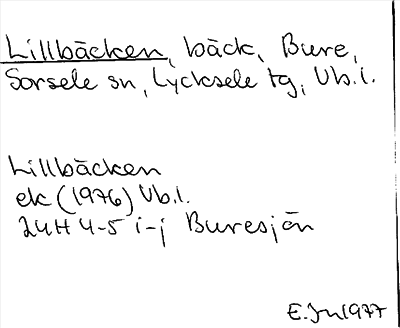 Lillbäcken, bäck, Bure,
Sorsele sn, Lycksele tg, Vb.l.
Lillbäcken
ek (1976) Vb.l.
24H 4-5 i-j Buresjön
1977